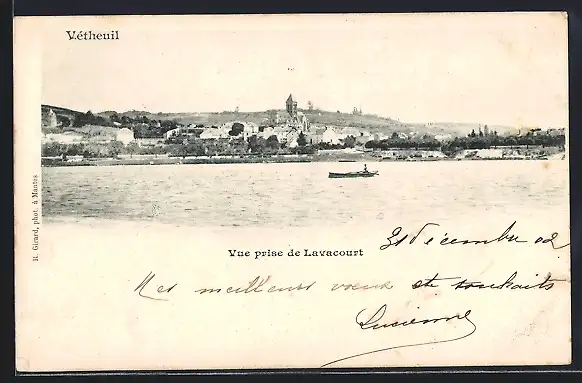 Vétheuil
R. Girard, phot. à Mantes
Vue prise de Lavacourt
31 décembre 02
Mes meilleurs voeux et souhaits
Lucienne